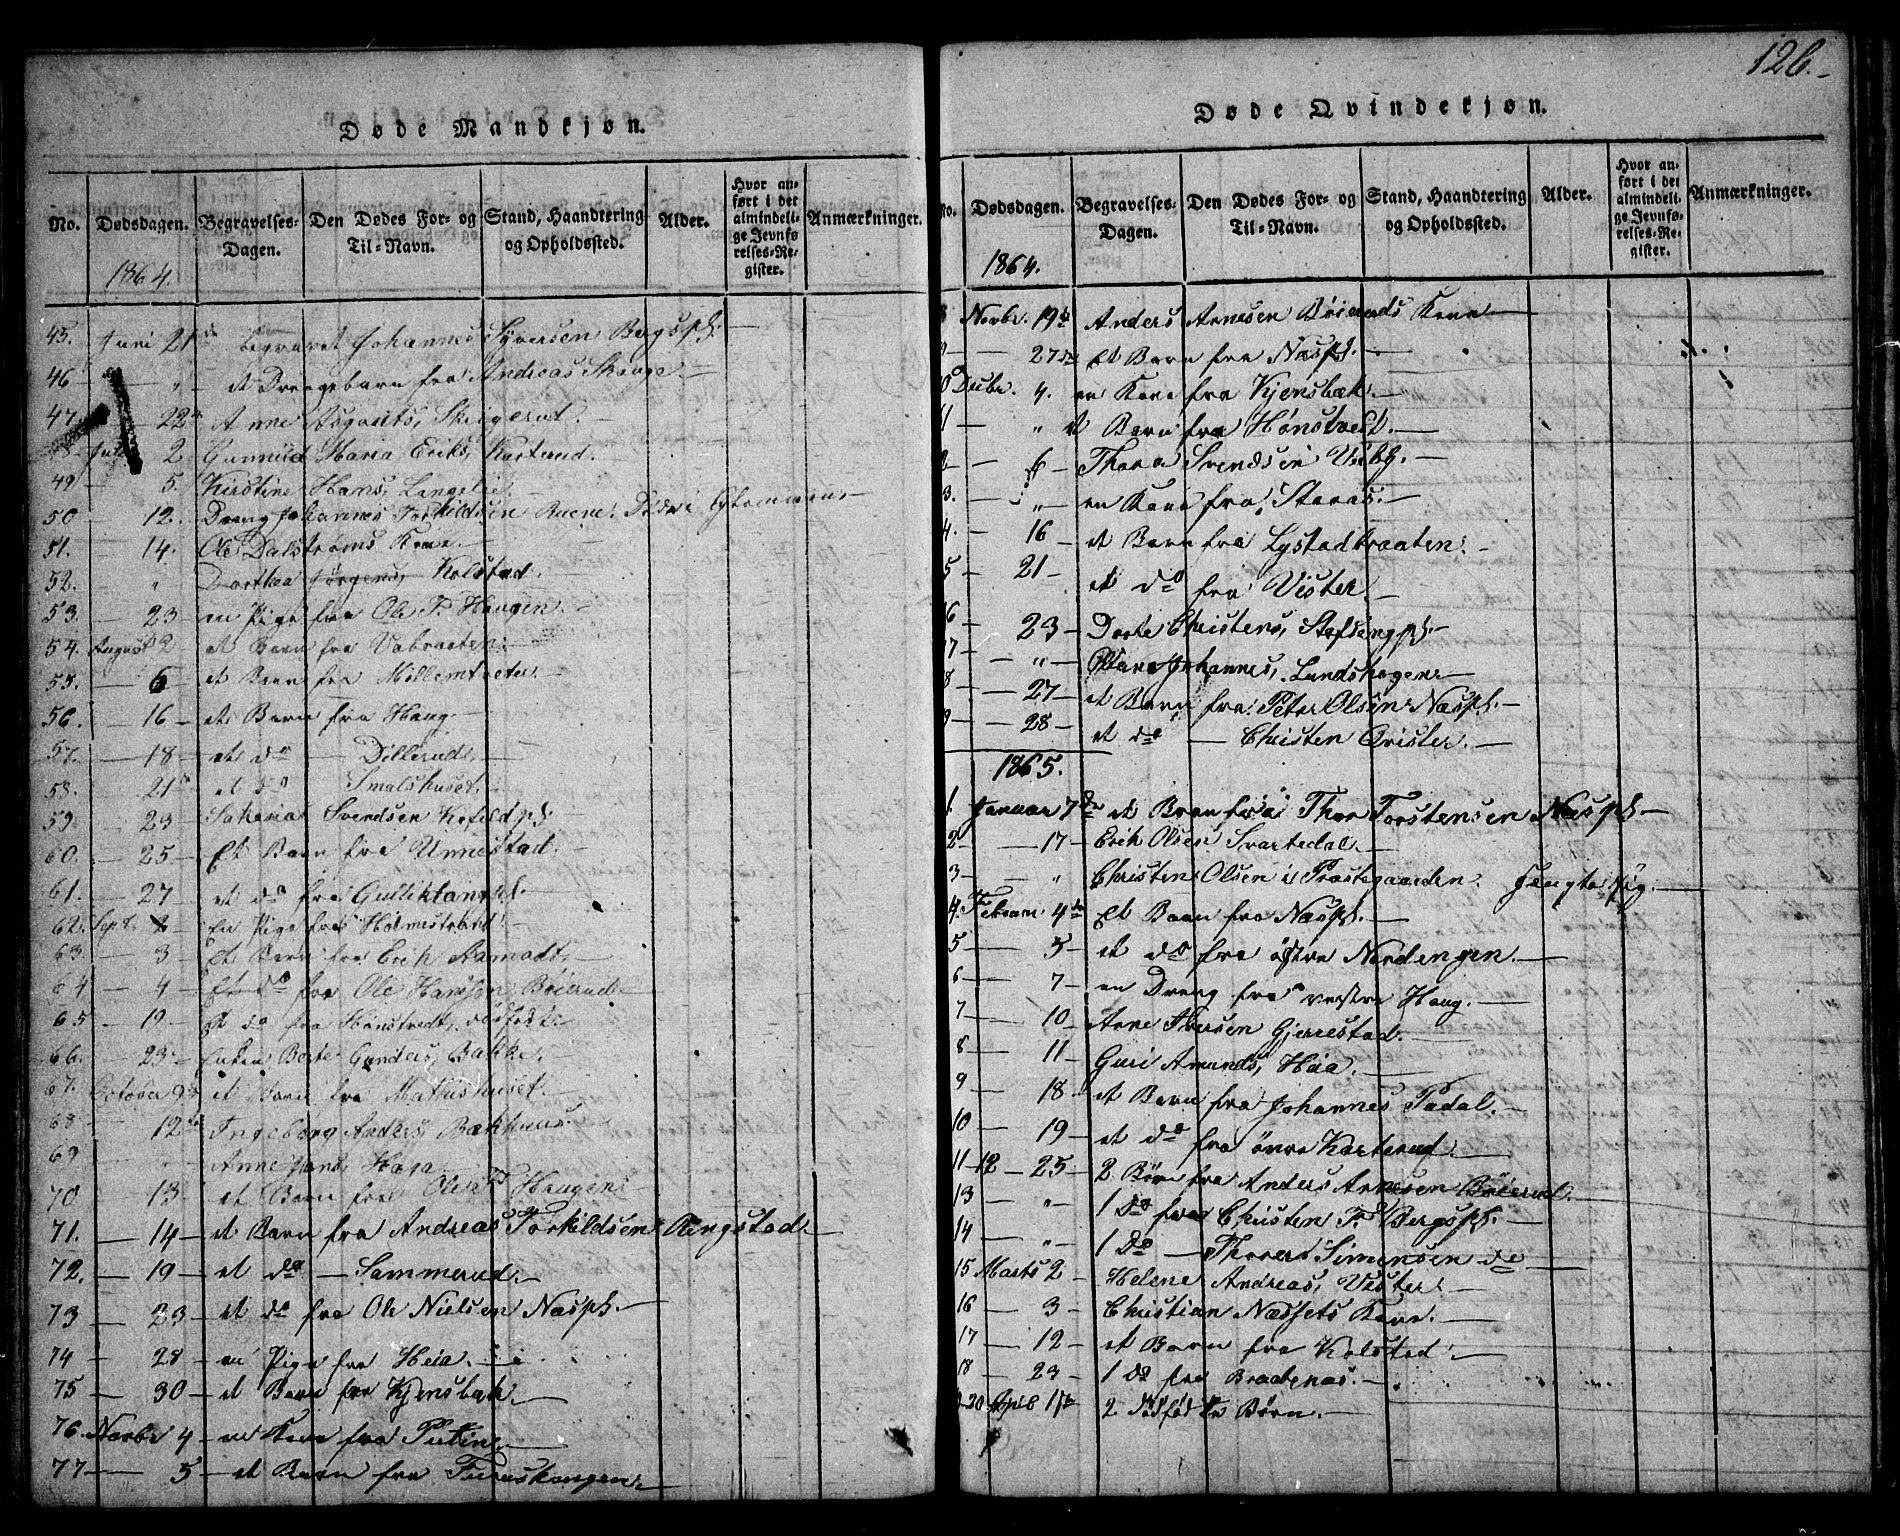 126.
Døde Mandkjøn.
No. Dødsdagen. Begravelses-Dagen. Den Dødes For- og Til-Navn. Stand, Haandtering og Opholdssted. Alder. Hvor anført i det almindelige Jevnførelses-Register. Anmærkninger.
1864.
45. Juni 21de begravet Johannes Syversen Bergspl.
46 — " et Drengebarn fra Andreas Skauge
47 — 22de Anne Asgauts, Skrigerud.
2 Gunnild Maria Eriks, Karterud.
49 — 5. Kirstine Hans, Langelie.
50 — 12. Dreng Johannes Torkildsen Ruene.
51. — 14. Ole Dalstrøms Kone
52. — " Dorthea Jørgens, Kolstad.
53. — 23 en Pige fra Ole P. Haugen.
54. August 2 et Barn fra Vabraaten.
55. — 6 et Barn fra Møllerntræter
56. — 16 — et Barn fra Haug.
57. — 18 — et do — Dillerud.
58. — 21 et do Smalshuset.
59. — 23 Svendsen Kefeldpl.
60. — 25 Et Barn fra Unnestad.
61. — 27 et do fra
62. Sept. 2 En Pige fra Holmestrand.
63. — 3 Et Barn fra Erik Aamodt.
64 — 4 Et do fra Ole Hansen Bøierud.
65 — 19 Et do fra Hønstvedt, dødfødt.
66. — 23 Enken Berte Gunders, Bakke.
67. October 9 et Barn fra Mathishuset.
68. — 12te Ingeborg Anders, Bækhuus.
69 Anne Jans, Haga
70 — 13 et Barn fra Ole P. Haugen
71. — 14 — et Barn fra Andreas Torkildsen Ringstad.
72. — 19 — et do — Sammerud.
73 — 23 — et do fra Ole Nielsen Næspl.
74 — 28 — en Pige fra Heia.
75 — 30 — et Barn fra Kjensbæk
76. Novbr 4 — en Kone fra Putin.
77 — 5 — et Barn fra Furuskaugen.
Døde Qvindekjøn.
No. Dødsdagen. Begravelses-Dagen. Den Dødes For- og Til-Navn. Stand, Haandtering og Opholdssted. Alder. Hvor anført i det almindelige Jevnførelses-Register. Anmærkninger.
1864.
8 Novbr. 19de Anders Arnesen Bøieruds Kone
9 — 27de Et Barn fra Næspl.
0 Decbr. 4. en Kone fra Kjensbæk.
1 — " et Barn fra Hønstvedt.
2 — 6 — Thora Svendsen
3. — " — en Kone fra Steras.
4. — 16 et Barn fra Lystadbraaten.
5 — 21 — et do fra Vister
6 — 23 — Dorte Christens, Stefsengpl.
7 — " — Johannes, Lundshagen
8 — 27 — et Barn fra Peter Olsen Næspl.
9 — 28 — et do — Christen Qvister.
1865.
1 Januar 7de et Barn fra Thor Torstensen Næspl.
2 — 17 — Erik Olsen Svartedal.
3 — " Christen Olsen i Præstegaarden.
4. Februar 4de Et Barn fra Næspl.
5 — 5 — et do fra østre Nordengen.
6 — 7 — en Dreng fra vestre Haug.
7 — 10 — Arne Iversen Gjerrestad.
8 — 11 — Guri Amunds, Heia.
9 — 18 — et Barn fra Johannes Tadal.
10 — 19 — et do fra øvre Karterud.
11 — 12 — 25 — 2 Børn fra Anders Arnesen Bøierud.
13 — " — 1 Do fra Christen P. Bergspl.
14 — " — 1 Do — Thorer Simensen do
15 Marts 2 — Helene Andreas, Vister.
16 — 3 — Christian Næssets Kone.
17 — 12 — et Barn fra Kolstad.
18 — 23 — 1 Do fra Bratenas.
20 April 2 dødfødte Børn.